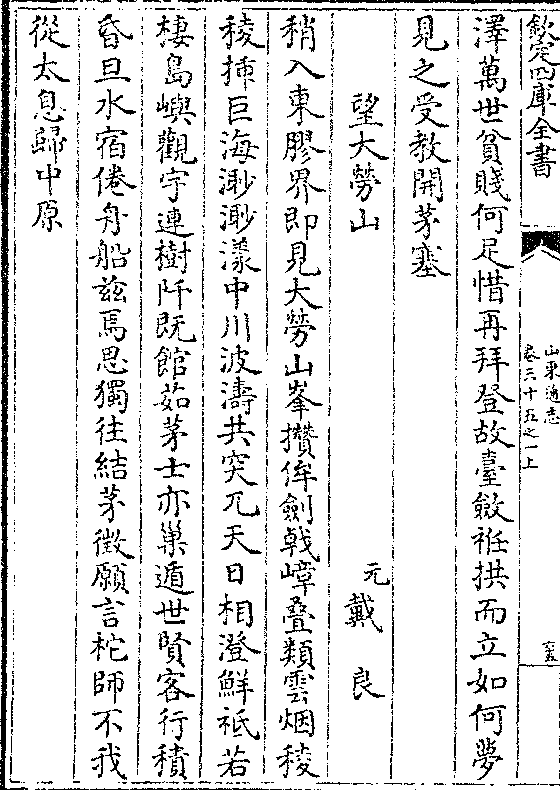 欽定四庫全書
山東通志
卷三十五之一上
澤萬世貧賤何足惜再拜登故臺斂袵拱而立如何夢
見之受教開茅塞
望大勞山
元戴良
稍入東膠界即見大勞山峯攢侔劍戟嶂叠類雲烟稜
稜揷巨海渺渺瀁中川波濤共突兀天日相澄鮮祗若
棲島嶼觀宇連樹阡既館茹茅士亦巢遁世賢客行積
昏旦水宿倦舟船兹焉思獨往結茅徵願言柁師不我
從太息歸中原